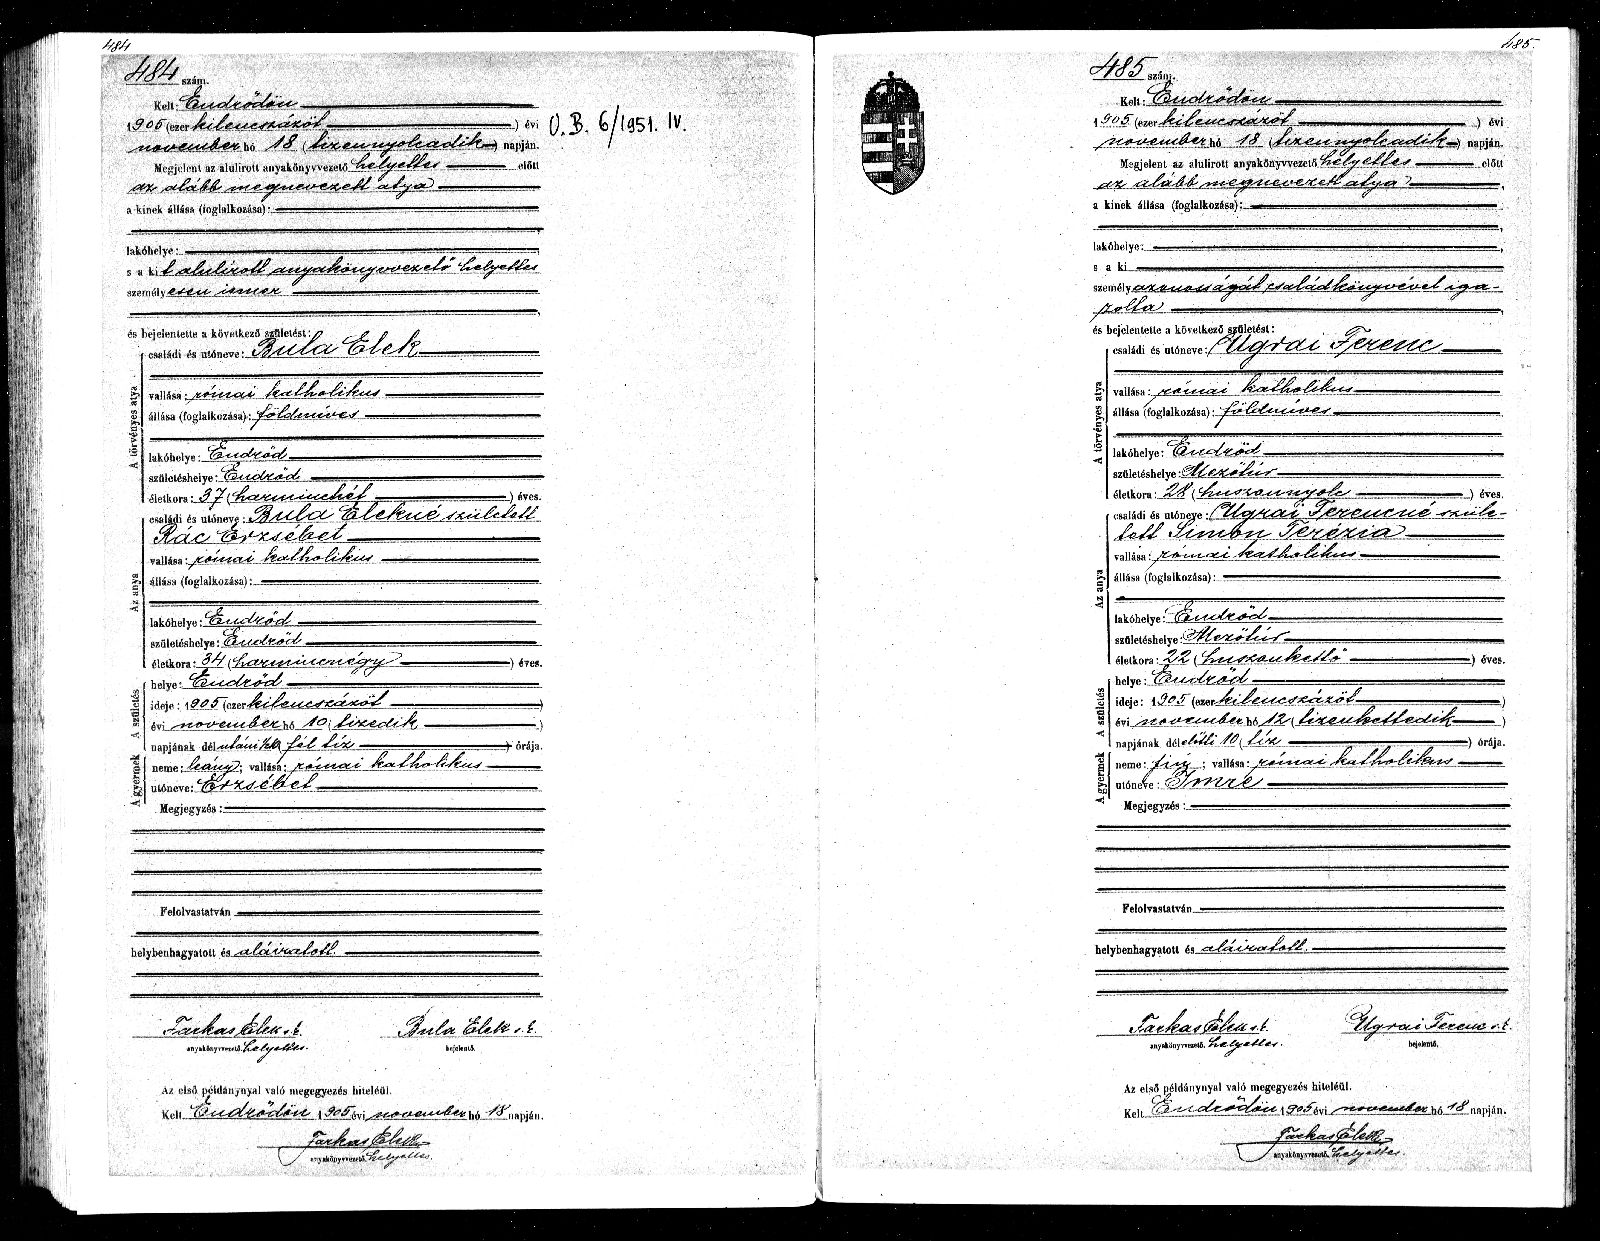 484
484 szám.
Kelt: Endrődön
1905 (ezer kilencszázöt ) évi
november hó 18 (tizennyolcadik) napján.
Megjelent az alulirott anyakönyvvezető helyettes előtt
az alább megnevezett atya
a kinek állása (foglalkozása):
lakóhelye:
s a kit alulirott anyakönyvvezető helyettes
személyesen ismer
és bejelentette a következő születést:
A törvényes atya
családi és utóneve: Bula Elek
vallása: római katholikus
állása (foglalkozása): földmíves
lakóhelye: Endrőd
születéshelye: Endrőd
életkora: 37 (harminchét ) éves.
Az anya
családi és utóneve: Bula Elekné született
Rác Erzsébet
vallása: római katholikus
állása (foglalkozása):
lakóhelye: Endrőd
születéshelye: Endrőd
életkora: 34 (harmincnégy ) éves.
A születés
helye: Endrőd
ideje: 1905 (ezer kilencszázöt )
évi november hó 10 (tizedik )
napjának délutáni ½10 (fél tíz ) órája.
A gyermek
neme: leány; vallása: római katholikus
utóneve: Erzsébet
Megjegyzés:
Felolvastatván
helybenhagyatott és aláiratott.
Farkas Elek s.k. Bula Elek s.k.
anyakönyvvezető. helyettes. bejelentő.
Az első példánynyal való megegyezés hiteléül.
Kelt Endrődön 1905 évi november hó 18 napján.
Farkas Elek
anyakönyvvezető. helyettes.
U. B. 6/1951. IV.
485.
485 szám.
Kelt: Endrődön
1905 (ezer kilencszázöt ) évi
november hó 18 (tizennyolcadik) napján.
Megjelent az alulirott anyakönyvvezető helyettes előtt
az alább megnevezett atya
a kinek állása (foglalkozása):
lakóhelye:
s a ki
személyazonosságát családkönyvével iga-
zolta
és bejelentette a következő születést:
A törvényes atya
családi és utóneve: Ugrai Ferenc
vallása: római katholikus
állása (foglalkozása): földmíves
lakóhelye: Endrőd
születéshelye: Mezőtúr
életkora: 28 (huszonnyolc ) éves.
Az anya
családi és utóneve: Ugrai Ferencné szüle-
tett Simon Terézia
vallása: római katholikus
állása (foglalkozása):
lakóhelye: Endrőd
születéshelye: Mezőtúr
életkora: 22 (huszonkettő ) éves.
A születés
helye: Endrőd
ideje: 1905 (ezer kilencszázöt )
évi november hó 12 (tizenkettedik )
napjának délelőtti 10 (tíz ) órája.
A gyermek
neme: fiu; vallása: római katholikus
utóneve: Imre
Megjegyzés:
Felolvastatván
helybenhagyatott és aláiratott.
Farkas Elek s.k. Ugrai Ferenc s.k.
anyakönyvvezető. helyettes. bejelentő.
Az első példánynyal való megegyezés hiteléül.
Kelt Endrődön 1905 évi november hó 18 napján.
Farkas Elek
anyakönyvvezető. helyettes.